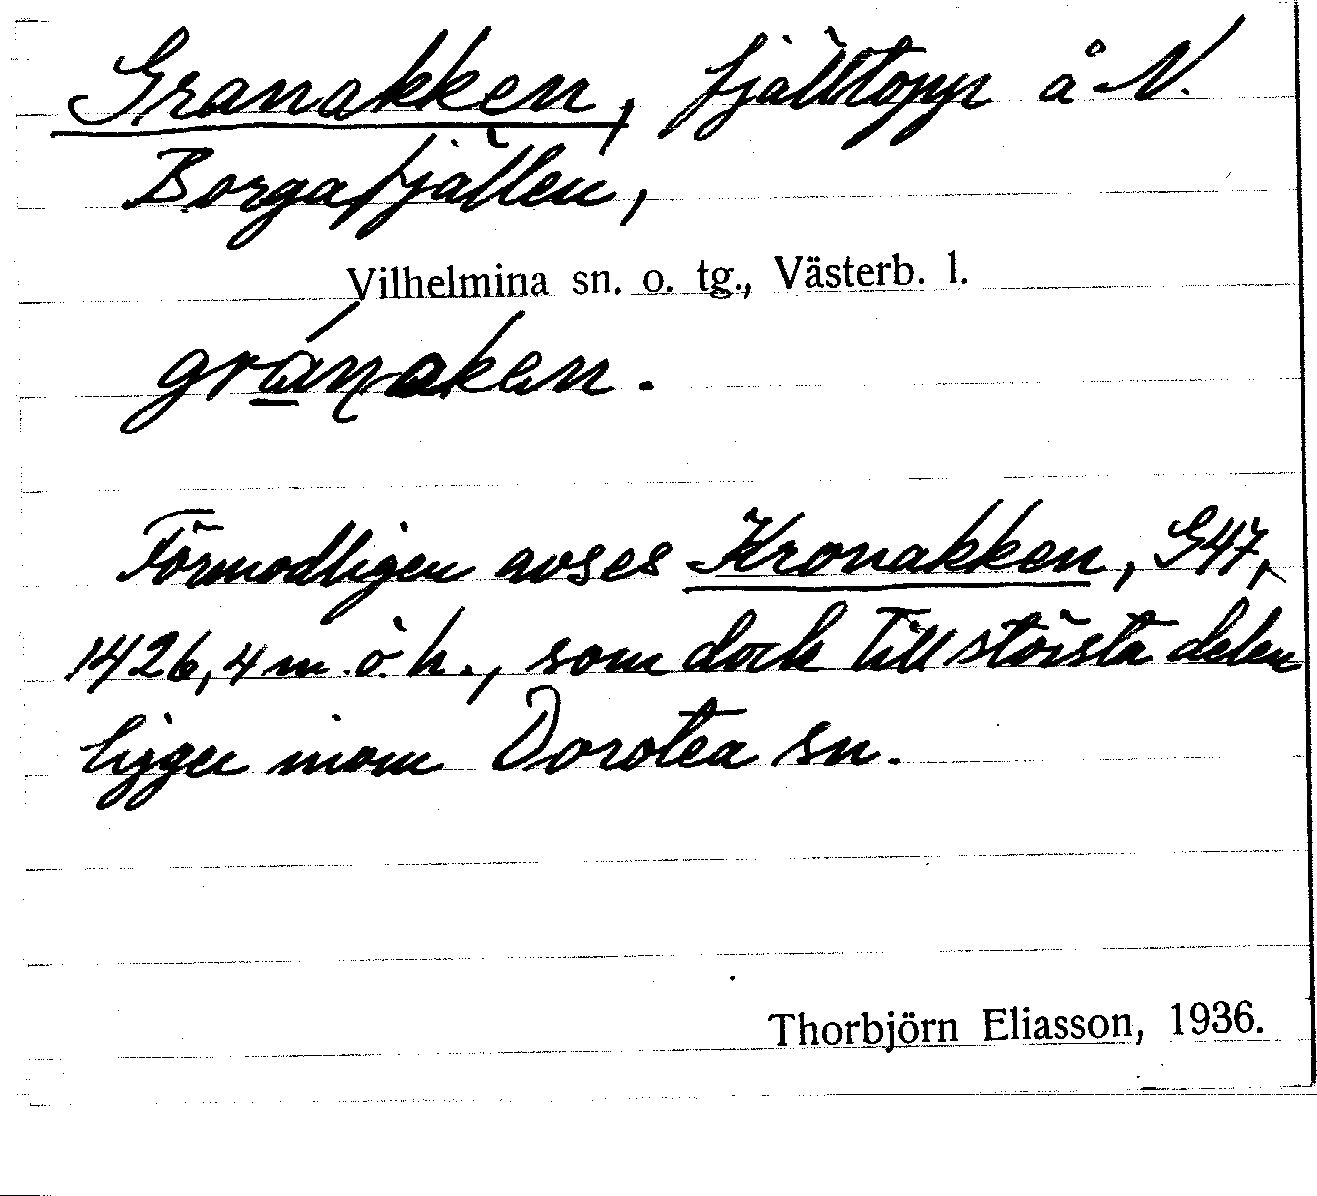 Granakken, fjälltopp å N.
Borgafjällen,
Vilhelmina sn. o. tg., Västerb. l.
gránakən.
Förmodligen avses Kronakken, G47,
1426,4 m ö. h., som dock till största delen
ligger inom Dorotea sn.
Thorbjörn Eliasson, 1936.